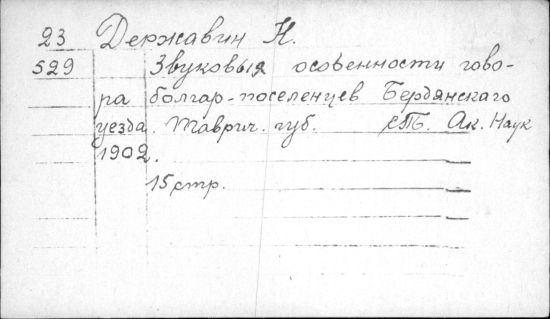 23 Державин Н.
529 Звуковыя особенности гово-
ра болгар-поселенцев Бердянскаго
уезда. Таврич. губ. СПб. Ак. Наук
1902.
15 стр.